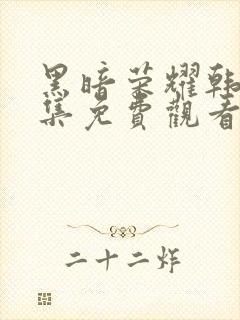 黑暗荣耀韩
集免費觀看
二十二炸